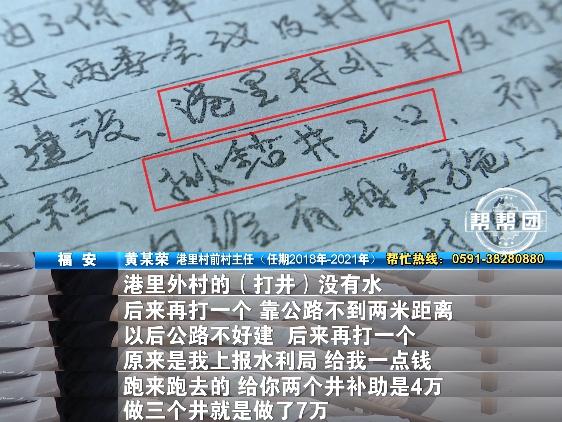 由于保障
村两委会议及村民
建设、港里村外村及两
工程、
钻井2口、初
帮帮团
福安 黄某荣 港里村前村主任（任期2018年-2021年） 帮忙热线：0591-38280880
港里外村的（打井）没有水
后来再打一个 靠公路不到两米距离
以后公路不好建 后来再打一个
原来是我上报水利局 给我一点钱
跑来跑去的 给你两个井补助是4万
做三个井就是做了7万